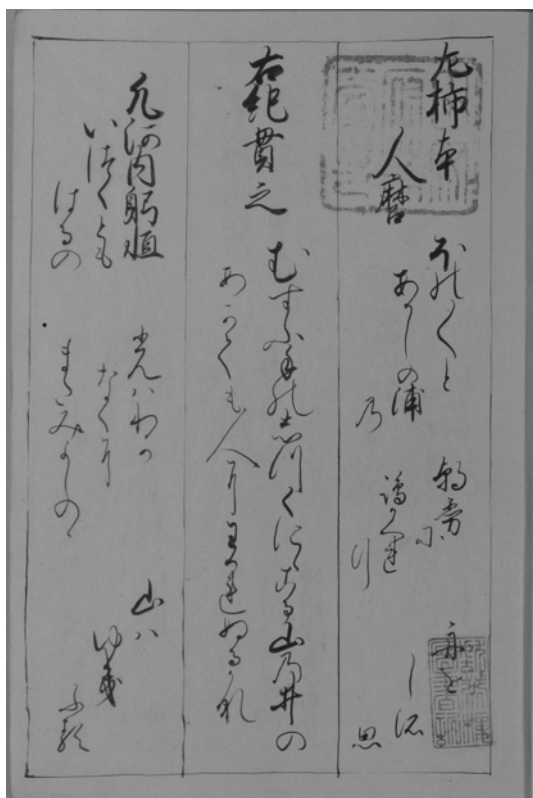 左柿本
人麿
ほのくと
あかしの浦
乃
朝霧
に
嶋かくれ
行
舟を
しそ
思
右紀貫之
むすふ手のしつくににこる山の井の
あかても人にわかれぬるかな
凡河内躬恒
いつくとも
はるの
光ハわか
なくに
またみよしのゝ
山ハ
ゆき
ふる